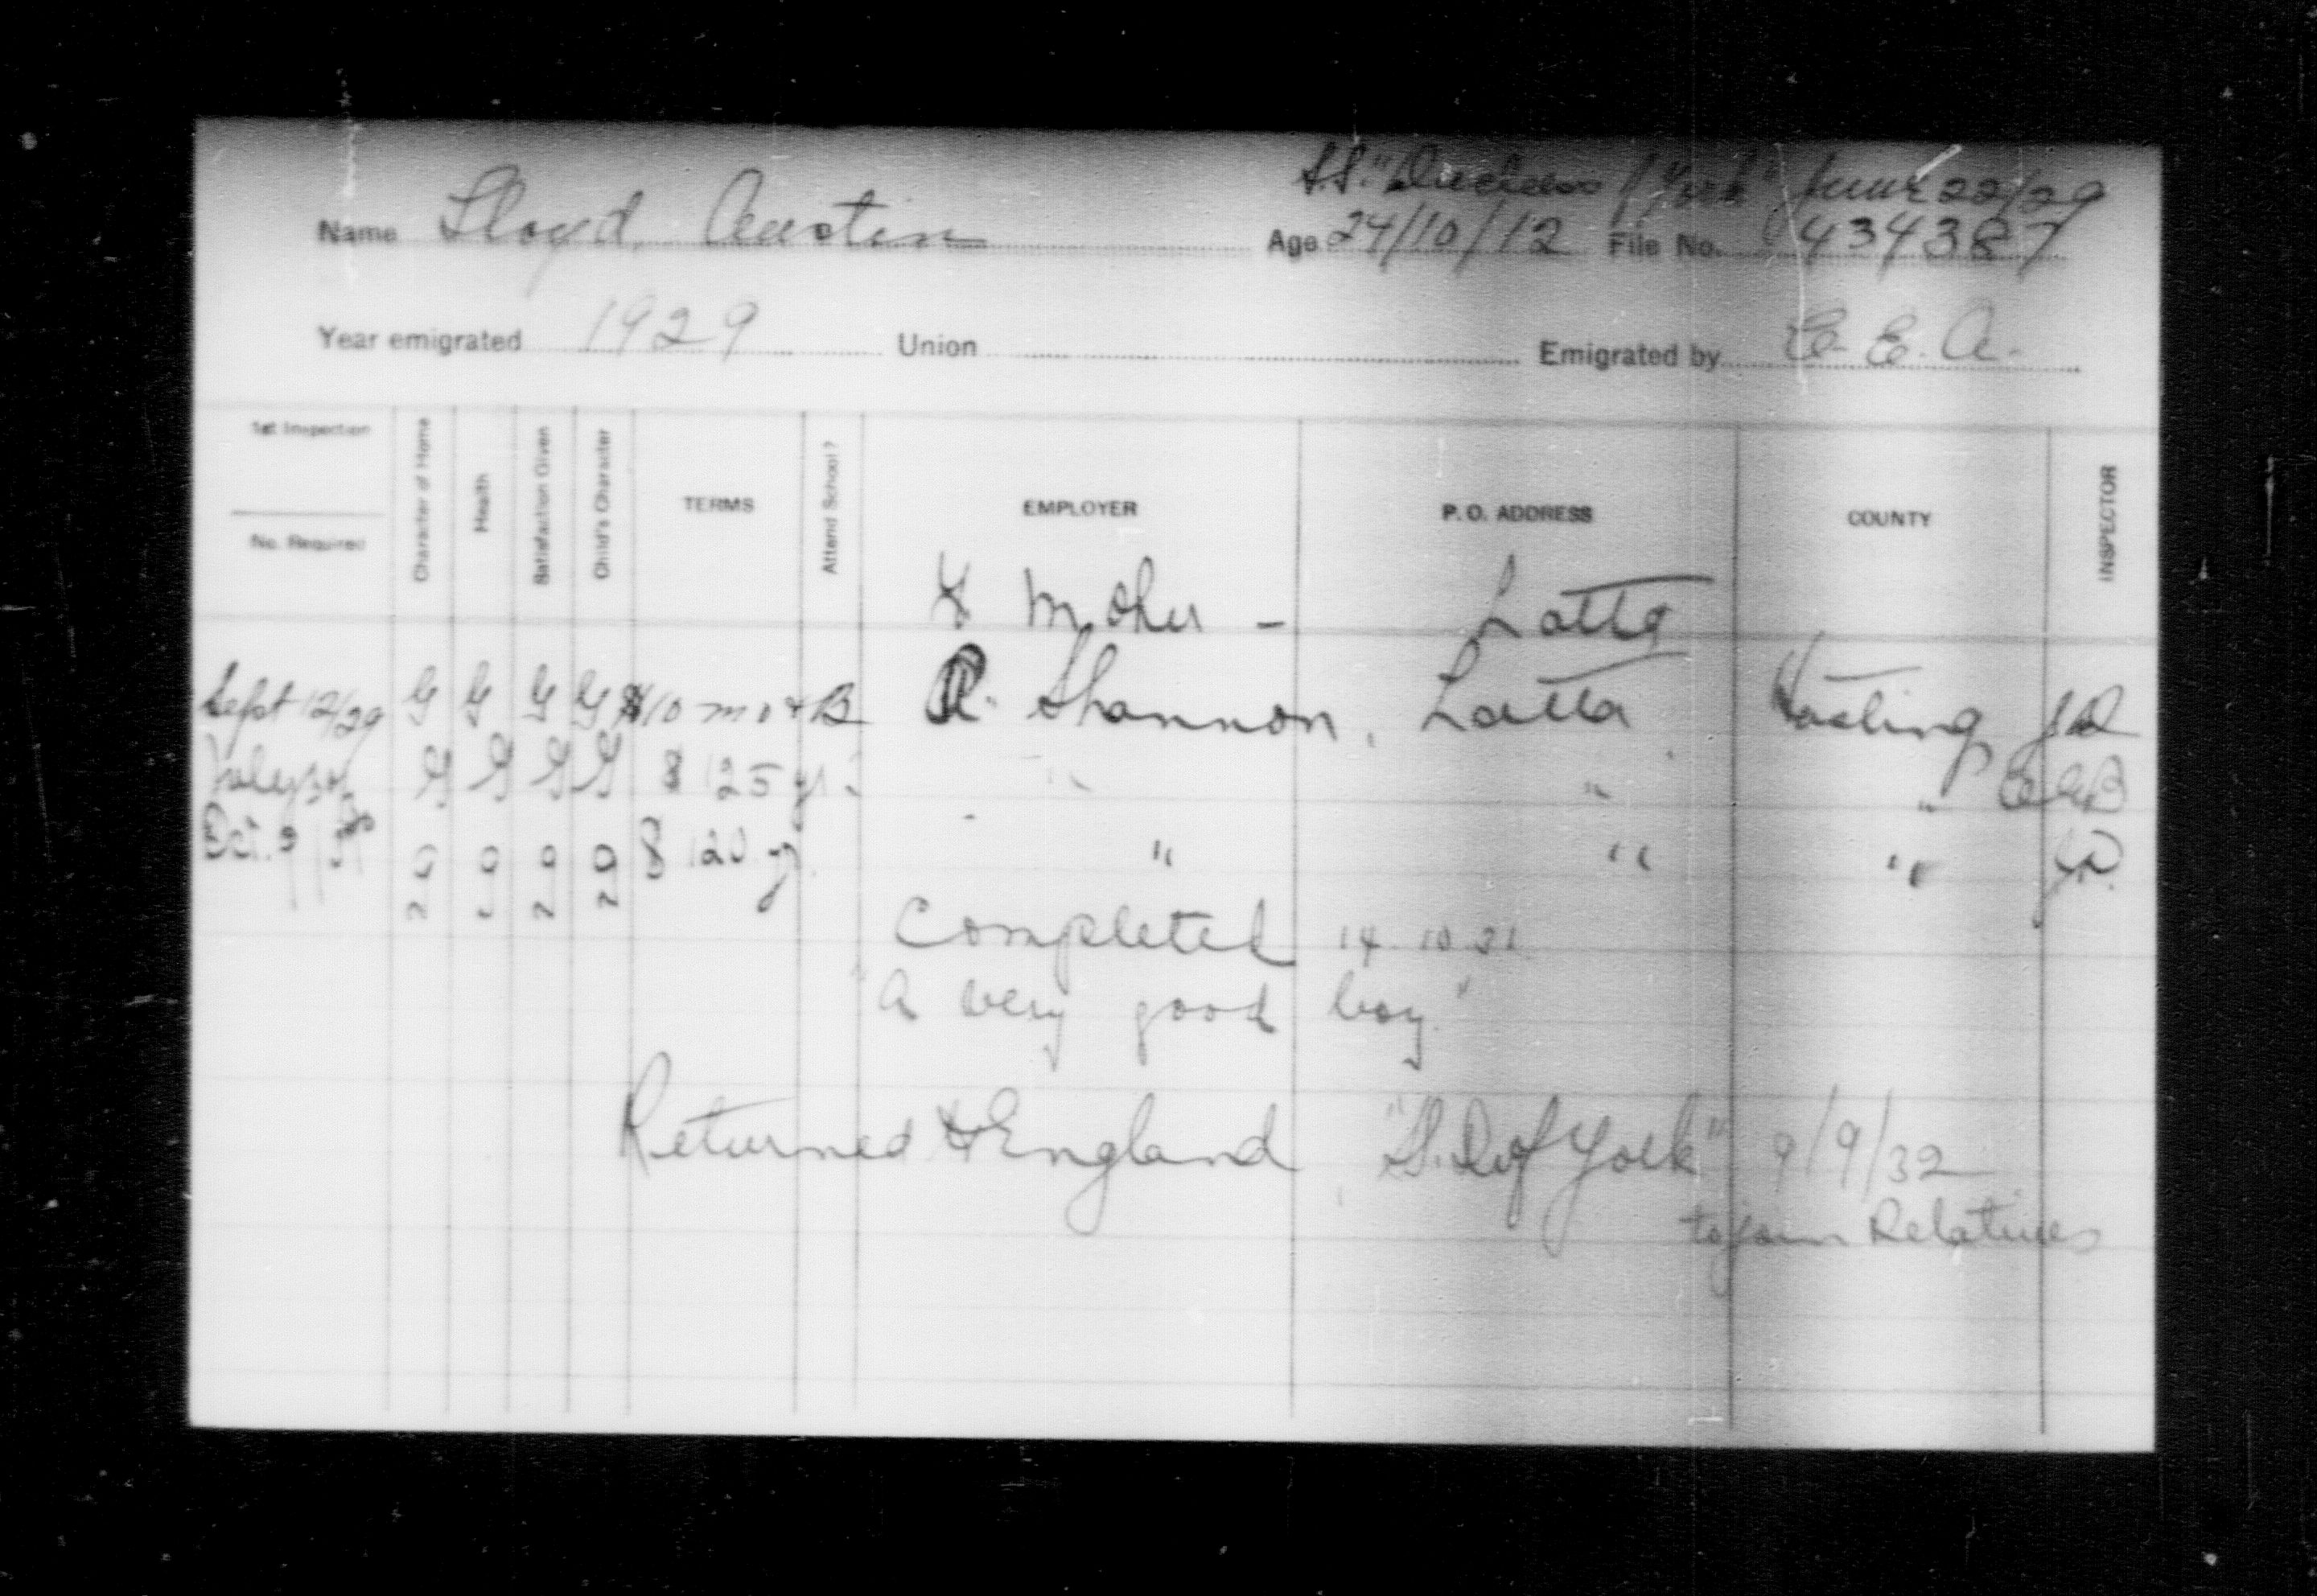 S.S. "Duchess of York" June 22/29
Name Lloyd, Austin Age 24/10/12 File No. 434387
Year emigrated 1929 Union Emigrated by C. E. A.
1st Inspection
No. Required
Character of Home
Health
Satisfaction Given
Child's Character
TERMS
Attend School?
EMPLOYER
P. O. ADDRESS
COUNTY
INSPECTOR
Moher - Latta
Sept 12/29 G G G G $10 mo + B R. Shannon, Latta Hastings
G G G G $125 yr. " " "
Oct. $120 y " " "
Completed 14 10 31
"A very good boy"
Returned to England "S. D of York" 9/9/32
to join Relatives